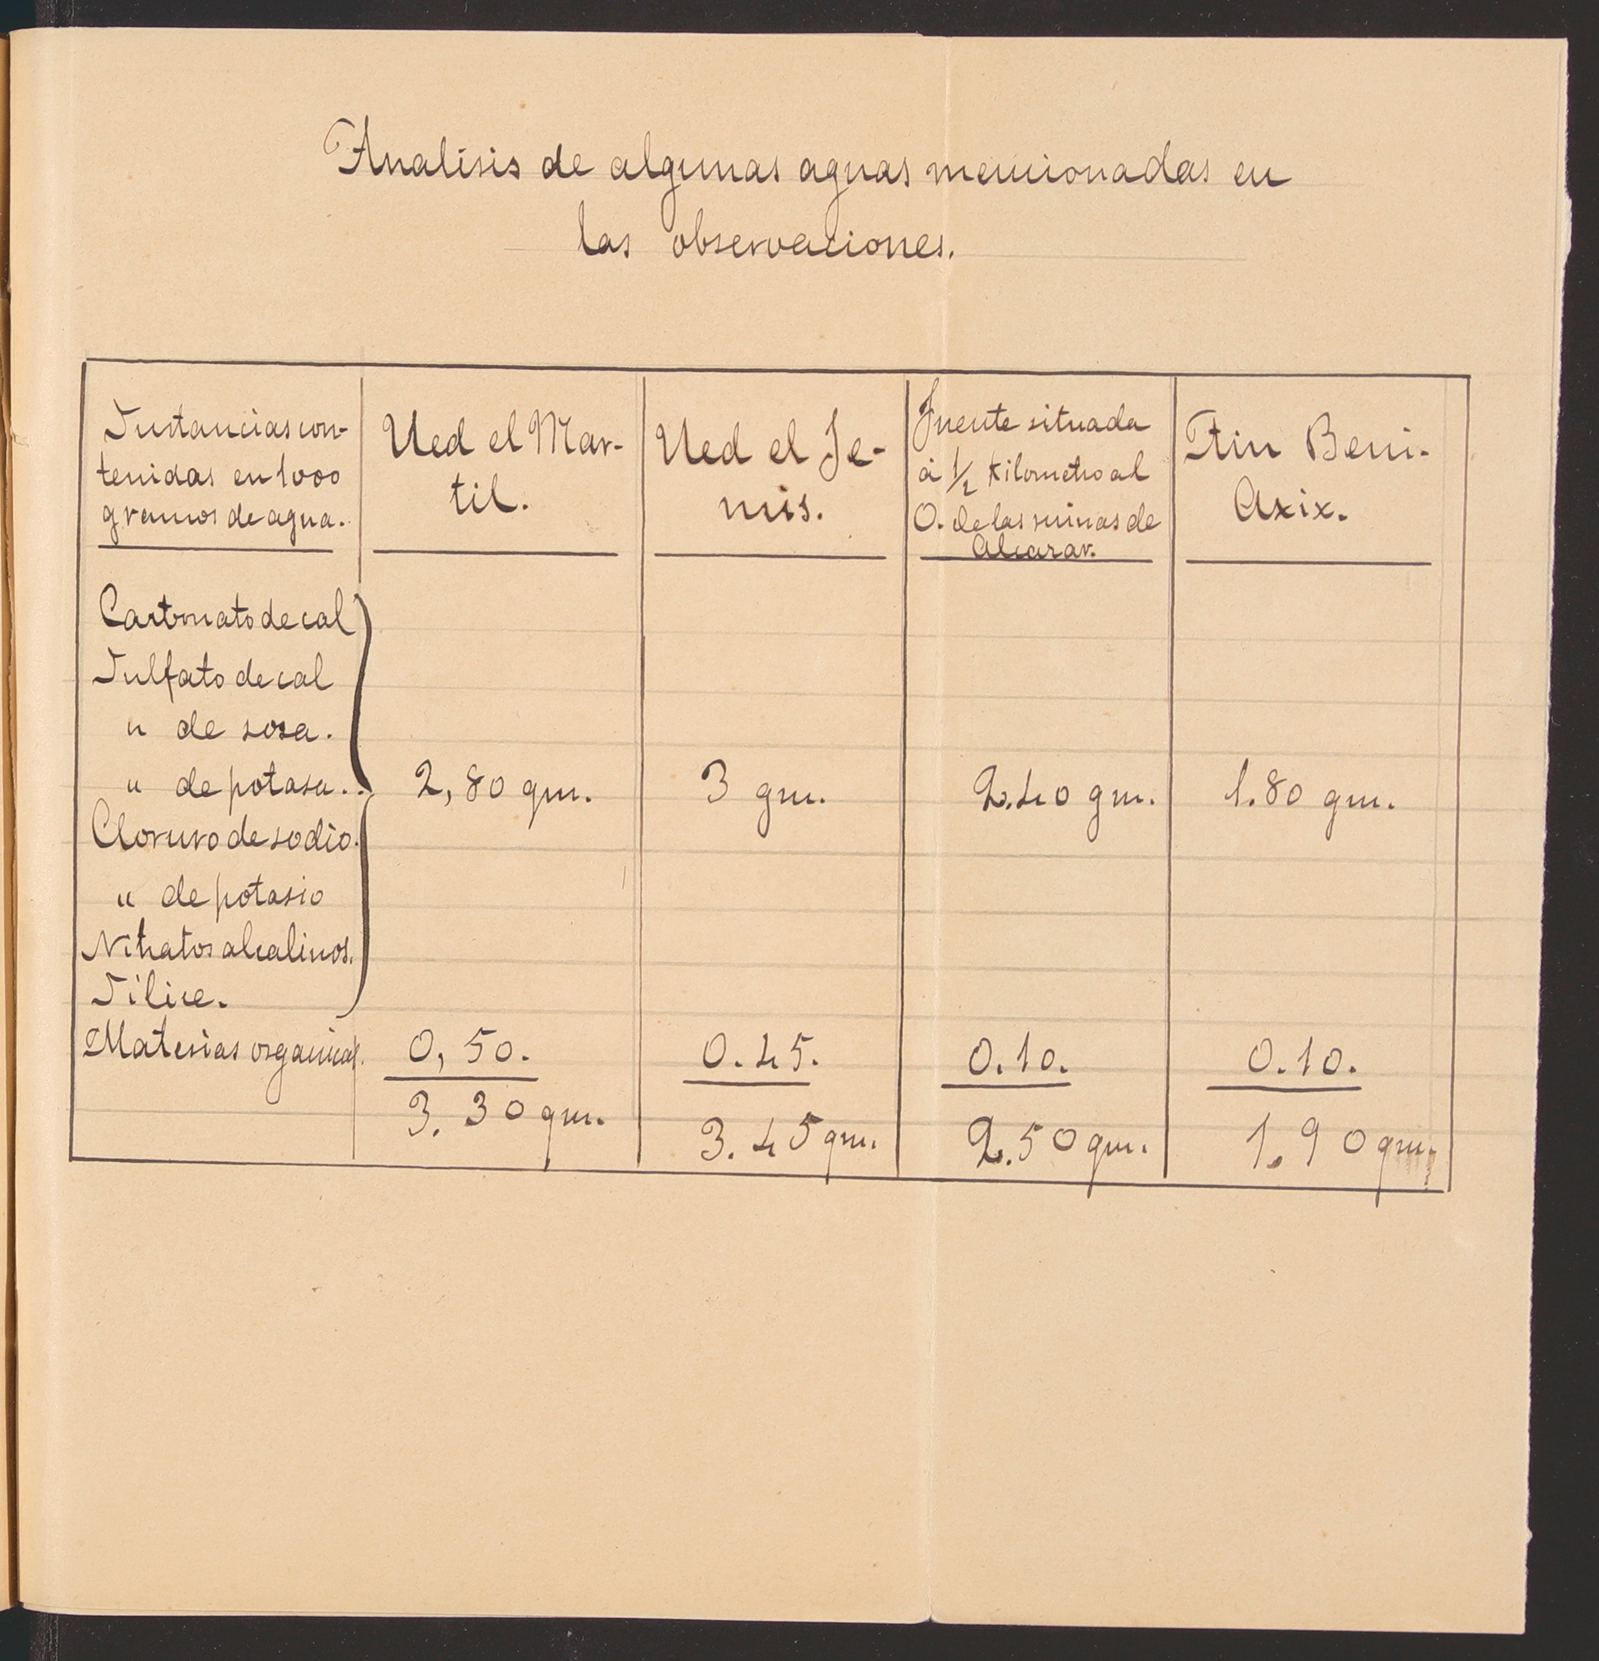 Analisis de algunas aguas mencionadas en
las observaciones.
Sustancias con-
tenidas en 1000
gramos de agua.
Ued el Mar-
til.
Ued el Je-
mis.
Fuente situada
á 1/2 kilometro al
O. de las ruinas de
Alcazar.
Ain Beni-
Axix.
Carbonato de cal
Sulfato de cal
" de sosa.
" de potasa..
Cloruro de sodio.
" de potasio
Nitratos alcalinos.
Silice.
2,80 gm.
3 gm.
2.40 gm.
1.80 gm.
Materias organicas.
0,50.
0.45.
0.10.
0.10.
3.30 gm.
3.45 gm.
2.50 gm.
1.90 gm.